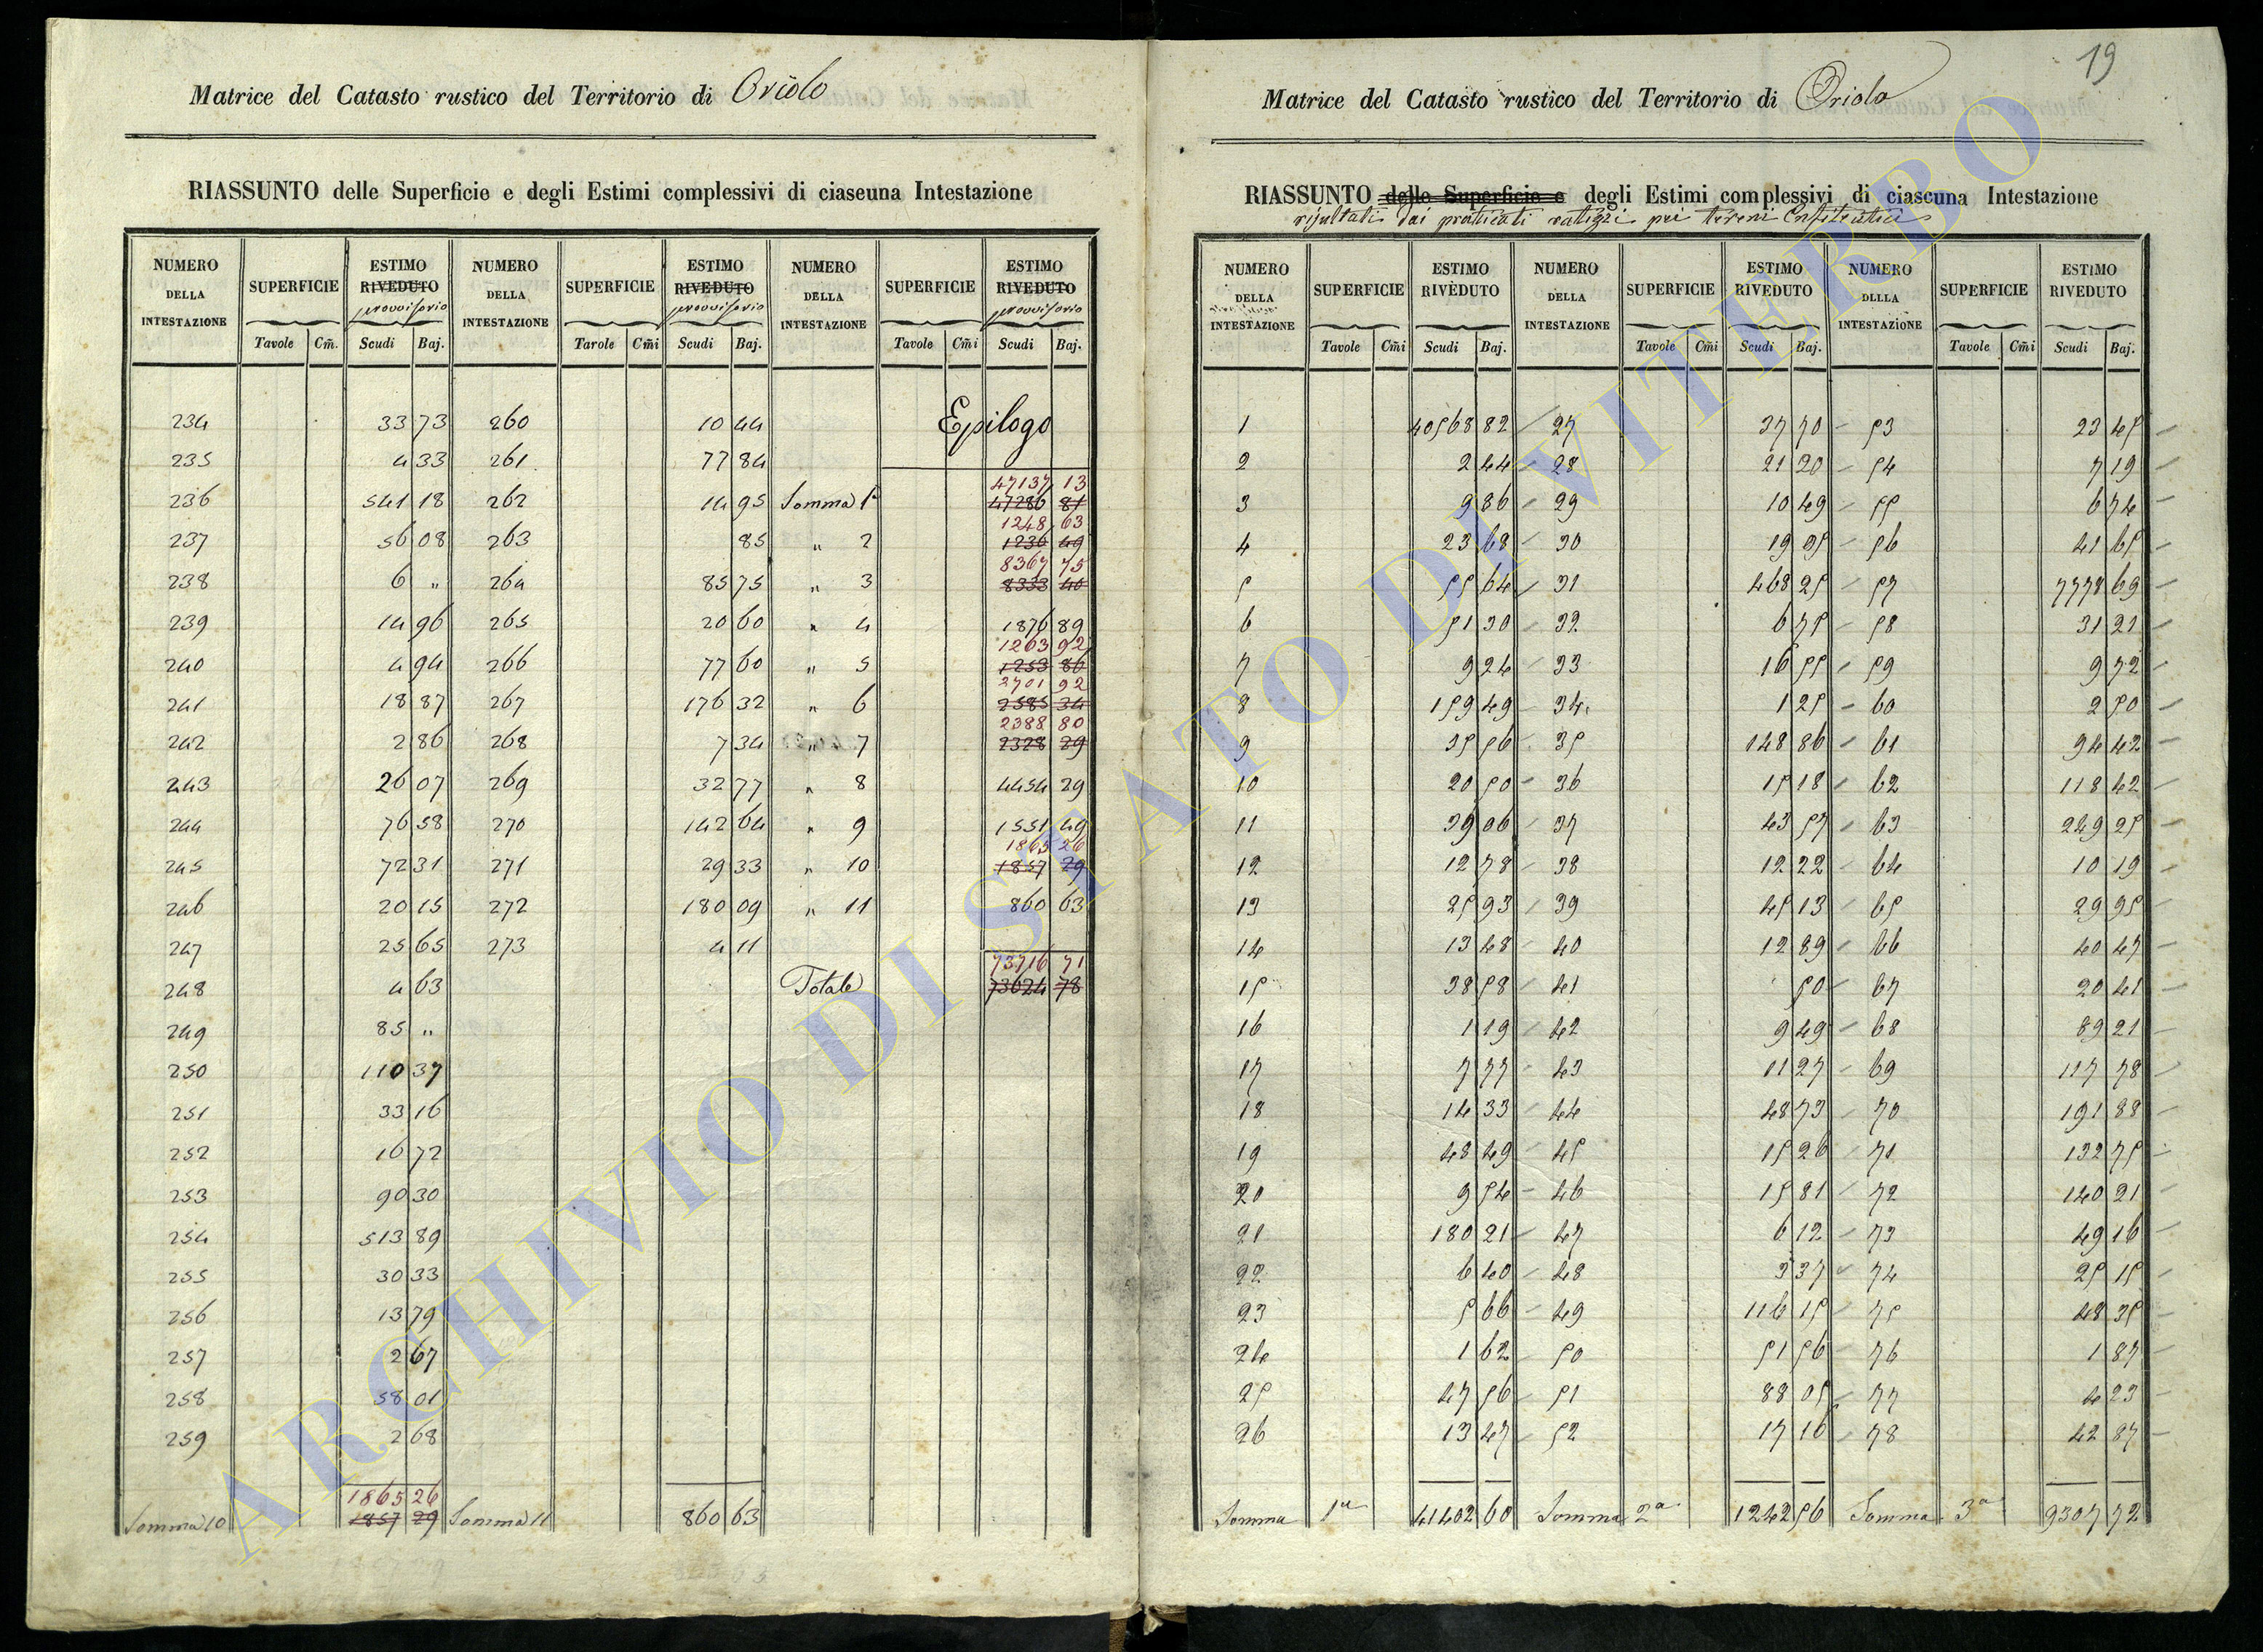 Matrice del Catasto rustico del Territorio di Oriolo
RIASSUNTO delle Superficie e degli Estimi complessivi di ciaseuna Intestazione
NUMERO DELLA INTESTAZIONE SUPERFICIE ESTIMO RIVEDUTO provvisorio NUMERO DELLA INTESTAZIONE SUPERFICIE ESTIMO RIVEDUTO provvisorio NUMERO DELLA INTESTAZIONE SUPERFICIE ESTIMO RIVEDUTO provvisorio
Tavole Cm̃. Scudi Baj. Tavole Cm̃i Scudi Baj. Tavole Cm̃i Scudi Baj.
234 33 73 260 10 44 Epilogo
235 4 33 261 77 84
47137 13
236 541 18 262 14 95 Somma 1ª 47286 81
1248 63
237 56 08 263 85 " 2 1236 49
8367 75
238 6 " 264 85 75 " 3 8333 40
239 14 96 265 20 60 " 4 1876 89
1263 92
240 4 94 266 77 60 " 5 1253 86
2701 92
241 18 87 267 176 32 " 6 2585 34
2388 80
242 2 86 268 7 34 " 7 2328 29
243 26 07 269 32 77 " 8 4454 29
244 76 58 270 142 64 " 9 1551 49
1865 26
245 72 31 271 29 33 " 10 1857 29
246 20 15 272 180 09 " 11 860 63
247 25 65 273 4 11
73716 71
248 4 63 Totale 73624 78
249 85 "
250 110 37
251 33 16
252 16 72
253 90 30
254 513 89
255 30 33
256 13 79
257 2 67
258 58 01
259 2 68
1865 26
Somma 10 1857 29 Somma 11 860 63
19
Matrice del Catasto rustico del Territorio di Oriolo
RIASSUNTO delle Superficie e degli Estimi complessivi di ciascuna Intestazione
risultati dai praticati pei terreni Enfiteutici
NUMERO DELLA INTESTAZIONE SUPERFICIE ESTIMO RIVEDUTO NUMERO DELLA INTESTAZIONE SUPERFICIE ESTIMO RIVEDUTO NUMERO DLLLA INTESTAZIONE SUPERFICIE ESTIMO RIVEDUTO
Tavole Cm̃i Scudi Baj. Tavole Cm̃i Scudi Baj. Tavole Cm̃i Scudi Baj.
1 40568 82 27 37 70 53 23 45
2 2 44 28 21 20 54 7 19
3 9 86 29 10 49 55 6 74
4 23 68 30 19 35 56 41 65
5 55 64 31 468 25 57 7778 69
6 51 30 32 6 75 58 31 21
7 9 24 33 16 55 59 9 72
8 159 49 34 1 25 60 2 50
9 35 56 35 148 86 61 94 42
10 20 50 36 15 18 62 118 42
11 39 06 37 43 57 63 249 25
12 12 78 38 12 22 64 10 19
13 25 93 39 45 13 65 29 95
14 13 48 40 12 89 66 40 47
15 38 58 41 50 67 20 41
16 1 19 42 9 49 68 89 21
17 7 77 43 11 27 69 117 78
18 14 33 44 48 73 70 191 88
19 48 49 45 15 26 71 132 75
20 9 54 46 15 81 72 140 21
21 180 21 47 6 12 73 49 16
22 6 40 48 3 37 74 25 15
23 5 66 49 116 15 75 48 35
24 1 62 50 51 56 76 1 87
25 47 56 51 88 05 77 4 23
26 13 47 52 17 16 78 42 87
Somma 1ª 41402 60 Somma 2ª 1242 56 Somma 3ª 9307 72
ARCHIVIO DI STATO DI VITERBO